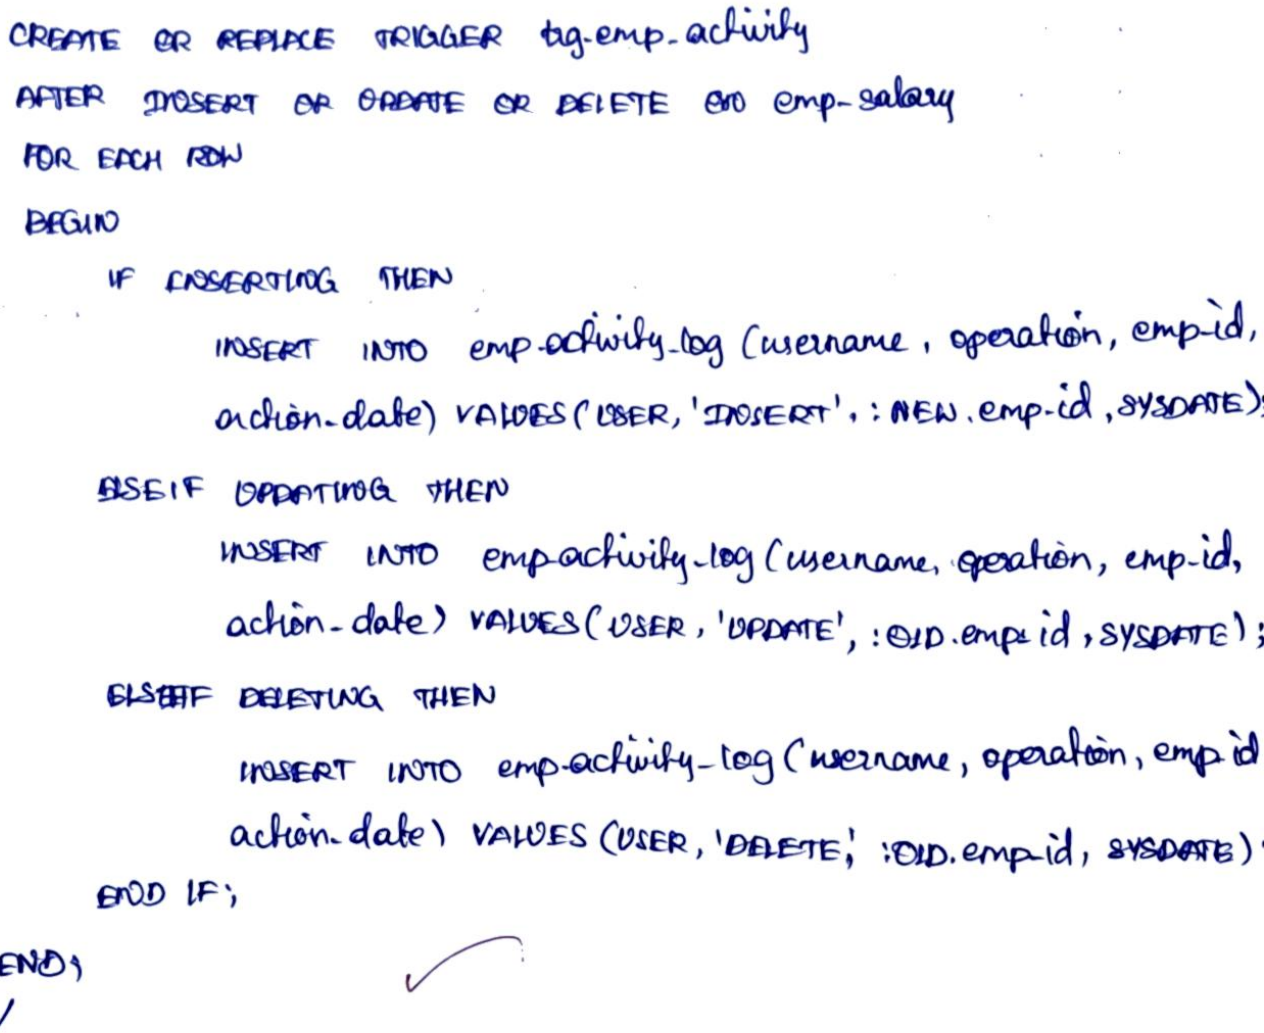 CREATE OR REPLACE TRIGGER trg-emp-activity
AFTER INSERT OR UPDATE OR DELETE ON emp-salary
FOR EACH ROW
BEGIN
IF INSERTING THEN
INSERT INTO emp-activity-log (username, operation, emp-id,
action-date) VALUES (USER, 'INSERT', :NEW.emp-id, SYSDATE);
ELSEIF UPDATING THEN
INSERT INTO emp-activity-log (username, operation, emp-id,
action-date) VALUES (USER, 'UPDATE', :OLD.emp-id, SYSDATE);
ELSEIF DELETING THEN
INSERT INTO emp-activity-log (username, operation, emp-id
action-date) VALUES (USER, 'DELETE', :OLD.emp-id, SYSDATE)
END IF;
END;
/